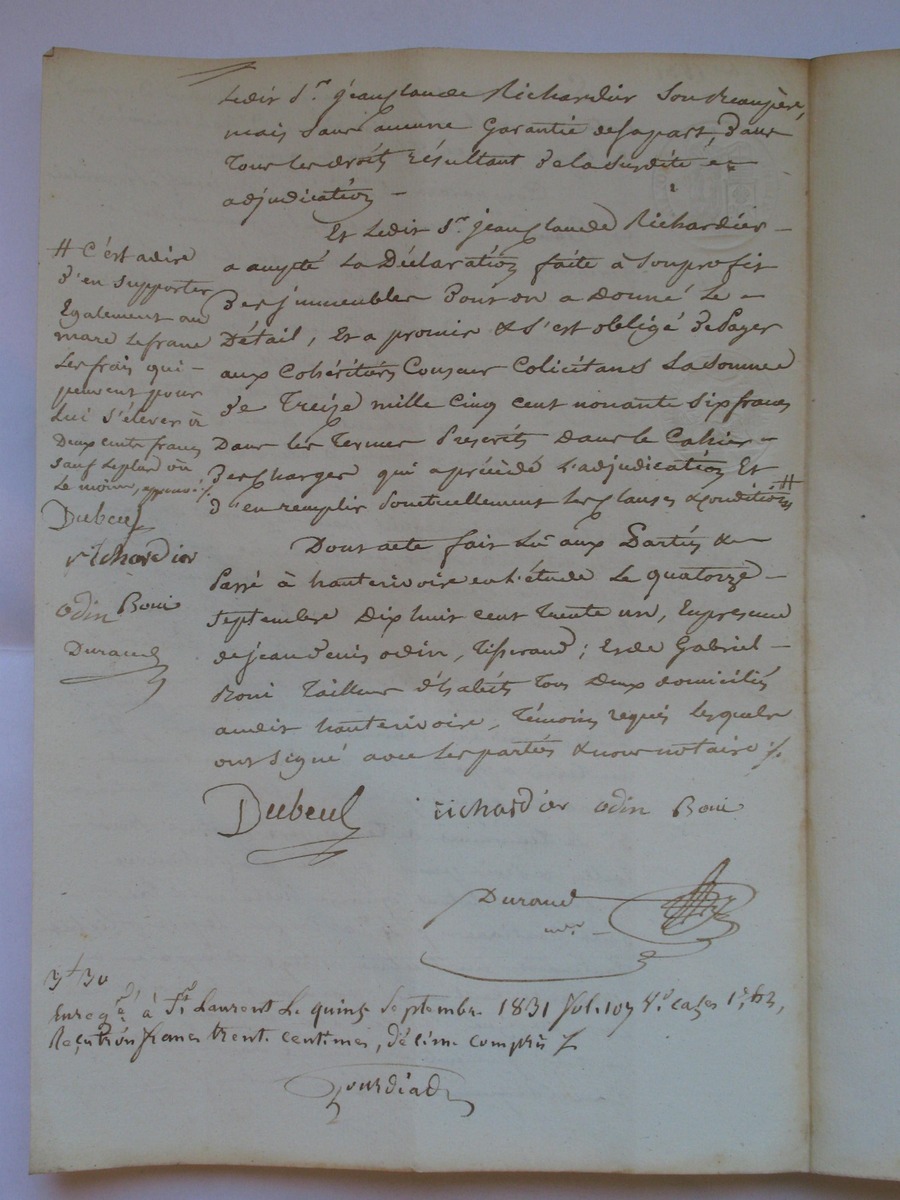 Ledit Sr. jean Claude Richardier Son Beaupère,
mais Sans aucune Garantie de Sa part, Dans
Tous les droits résultant de la Susdite
adjudication –
Et Ledit Sr. jean Claude Richardier –
a accepté La Déclaration faite à Son profit
Des jmmeubles Dont on a Donné Le –
Détail, Et a promis & S'est obligé de Payer
aux Cohéritiers Colicitans La Somme
De Treize mille Cinq cent nonante Six francs
Dans les Termes Prescrits dans le Cahier –
Des Charges qui a précédé L'adjudication Et
D'en remplir Ponctuellement Les Clauses & Conditions #
# C'est adire
D'en Supporter
Egalement au
marc Le franc
Les frais qui –
peuvent pour
Lui S'élever à
Deux cents francs
Sauf Le plus ou
Le moins,
Dubeuf
richardier
odin Boni
Durand
Dont acte fait Lu aux Parties &
Passé à hauterivoire en L'étude Le quatorze –
Septembre Dix huit cent Trente un, En presence
de jean Denis odin, Tisserand; Et de Gabriel –
Boni Tailleur d'habits Tous Deux domiciliés
audit hauterivoire, Témoins requis Lesquels
ont Signé avec Les parties & nous notaire ./.
Dubeuf richardier odin Boni
Durand
nre. –
3f 30
Enregé. à St. Laurent Le quinze Septembre 1831 fol. 107 Vo. cases 1re
Reçu trois francs trente centimes, décime compris ./.